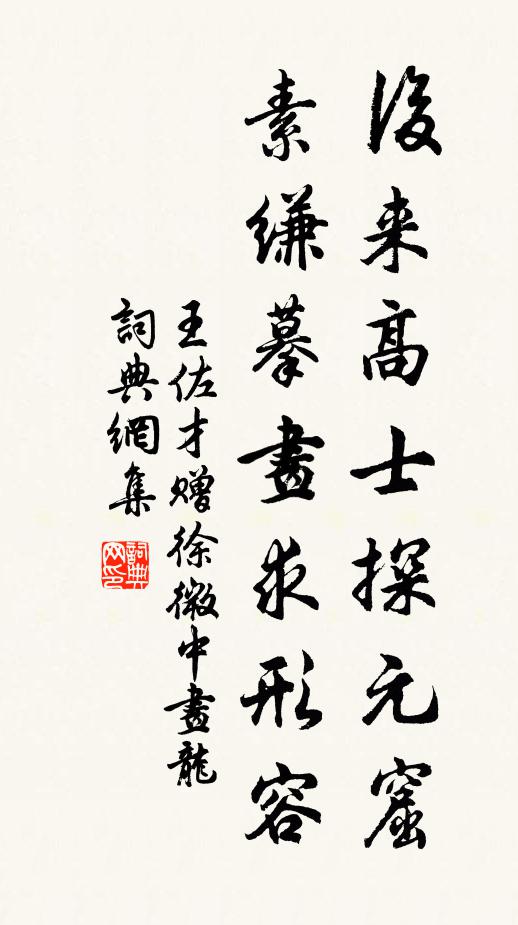 後来高士探元窟
素缣摹畫求形容
王佐才赠徐微中畫龍
詞典網集
詞典网印